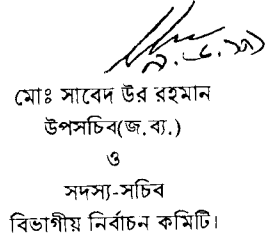 মোঃ সাবেদ উর রহমান
উপসচিব(জ.ব্য.)
ও
সদস্য-সচিব
বিভাগীয় নির্বাচন কমিটি।